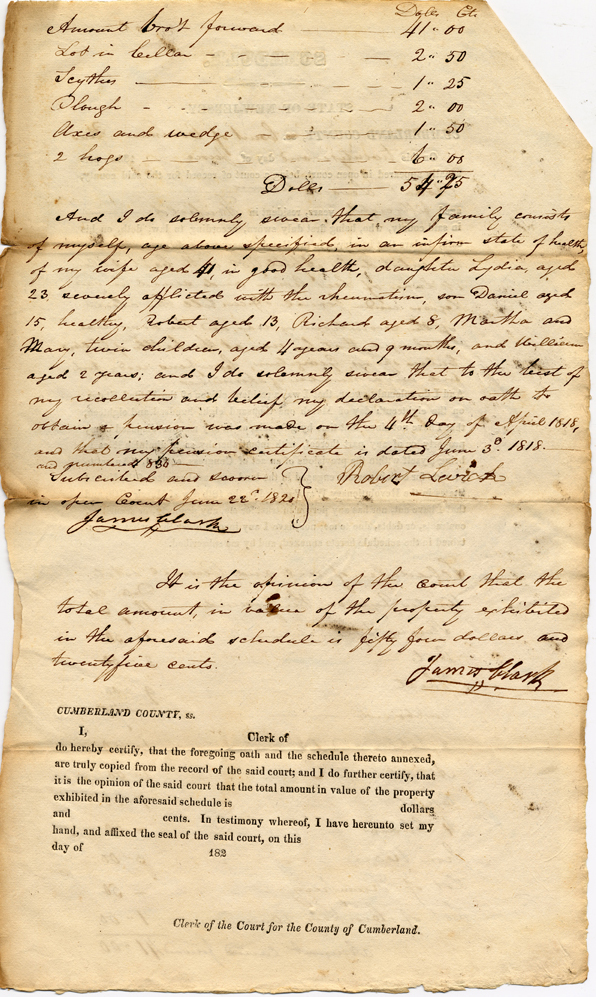 Dolls Cts
Amount bro't forward — 41" 00
Lot in Cellar - - - - 2" 50
Scythes — 1" 25
Plough - — 2" 00
Axes and wedge — 1" 50
2 hogs — 6" 00
Dolls — 54" 25
And I do solemnly swear that my family consists
of myself, age above specified, in an infirm state of health,
of my wife aged 41, in good health, daughter Lydia, aged
23, severely afflicted with the rheumatism, son Daniel aged
15, healthy, Robert aged 13, Richard aged 8, Martha and
Mary, twin children, aged 4 years and 9 months, and William
aged 2 years; and I do solemnly swear that to the best of
my recollection and belief my declaration on oath to
obtain a pension was made on the 4th day of April 1818,
and that my pension certificate is dated June 3d 1818
and numbered
Subscribed and sworn
in open Court June 22d
Robert
James Clark
It is the opinion of the court that the
total amount, in value of the property exhibited
in the aforesaid schedule is fifty four dollars and
twentyfive cents.
James Clark
CUMBERLAND COUNTY, ss.
I, Clerk of
do hereby certify, that the foregoing oath and the schedule thereto annexed,
are truly copied from the record of the said court; and I do further certify, that
it is the opinion of the said court that the total amount in value of the property
exhibited in the aforesaid schedule is dollars
and cents. In testimony whereof, I have hereunto set my
hand, and affixed the seal of the said court, on this
day of 182
Clerk of the Court for the County of Cumberland.